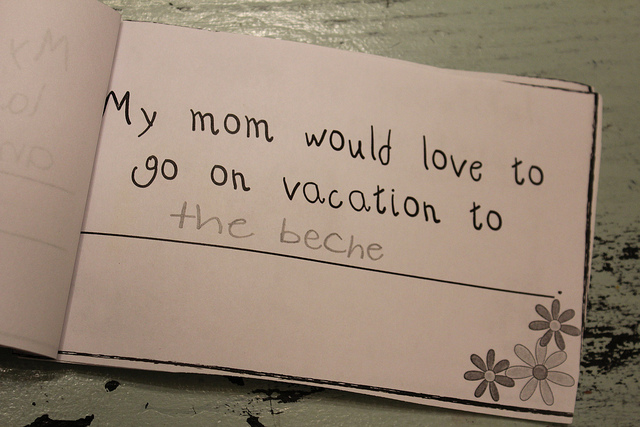 My mom would love to
go on vacation to
the beche